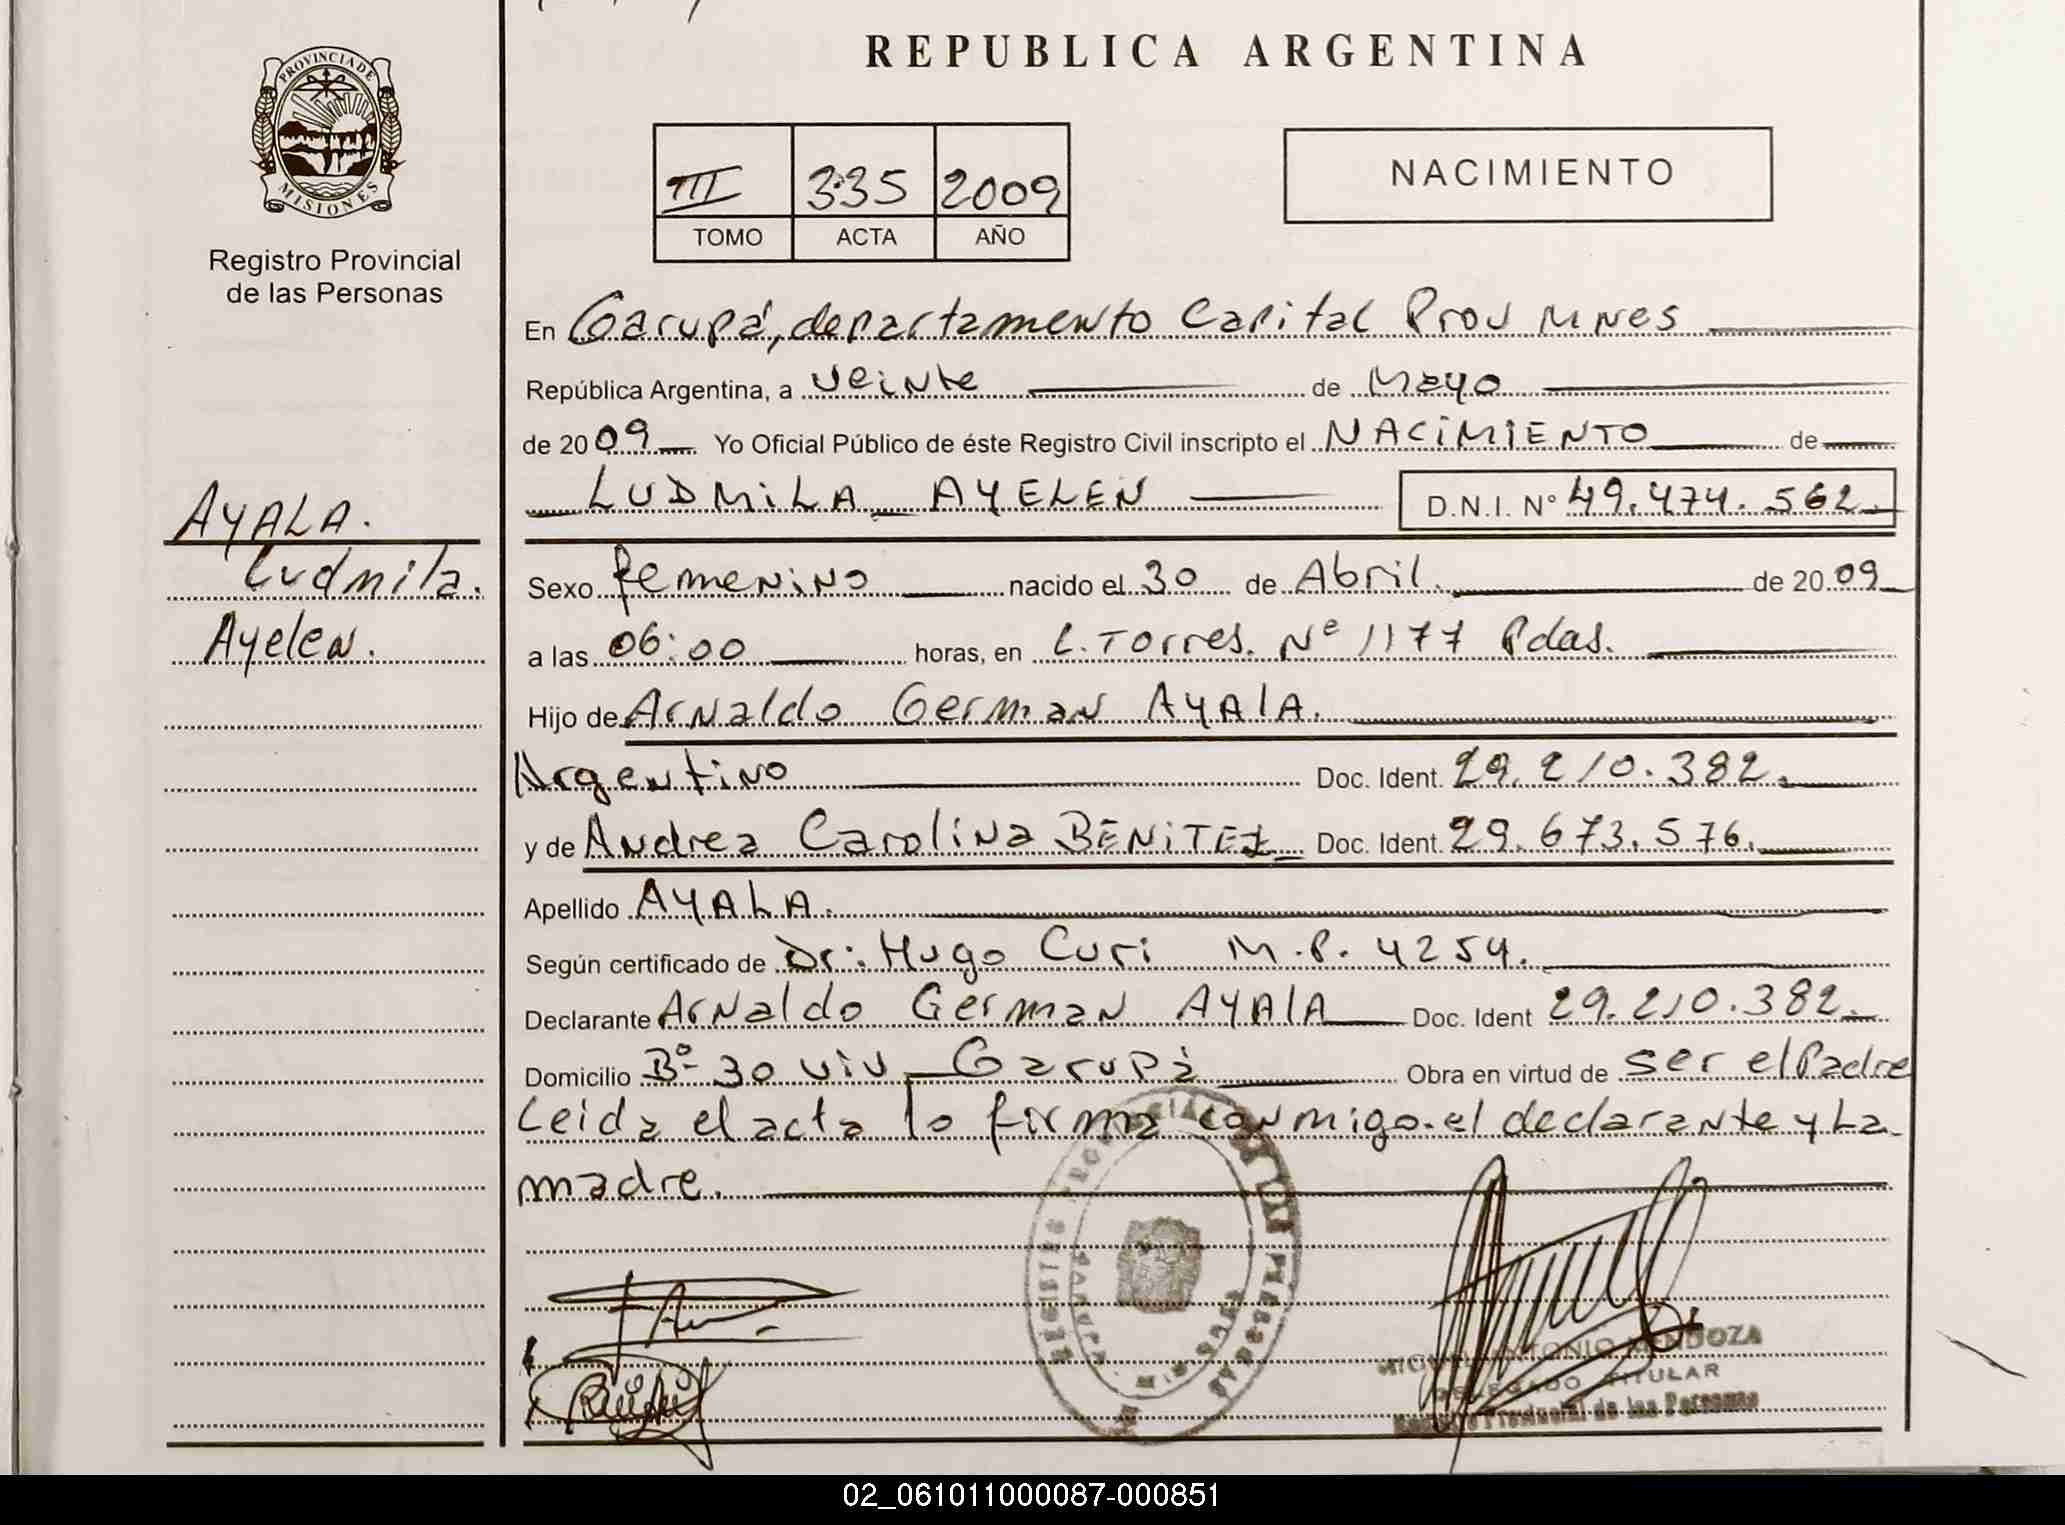 REPUBLICA ARGENTINA
PROVINCIA DE
MISIONES
Registro Provincial
de las Personas
III 335 2009
TOMO ACTA AÑO
NACIMIENTO
AYALA.
Ludmila.
Ayelen.
En Garupá, departamento Capital Prov Mnes
República Argentina, a veinte de Mayo
de 2009 Yo Oficial Público de éste Registro Civil inscripto el NACIMIENTO de
LUDMILA AYELEN D.N.I. N° 49.474.562.
Sexo femenino nacido el 30 de Abril. de 2009
a las 06:00 horas, en L. Torres. Nº 1177 Pdas.
Hijo de Arnaldo German AYALA.
Argentino Doc. Ident. 29.210.382.
y de Andrea Carolina BENITEZ Doc. Ident. 29.673.576.
Apellido AYALA.
Según certificado de Dr: Hugo Curi M.P. 4254.
Declarante Arnaldo German AYALA Doc. Ident 29.210.382.
Domicilio Bº 30 viv Garupá Obra en virtud de ser el Padre
Leida el acta lo firma conmigo el declarante y La
madre.
MIGUEL ANTONIO MENDOZA
DELEGADO TITULAR
Registro Provincial de las Personas
02_061011000087-000851